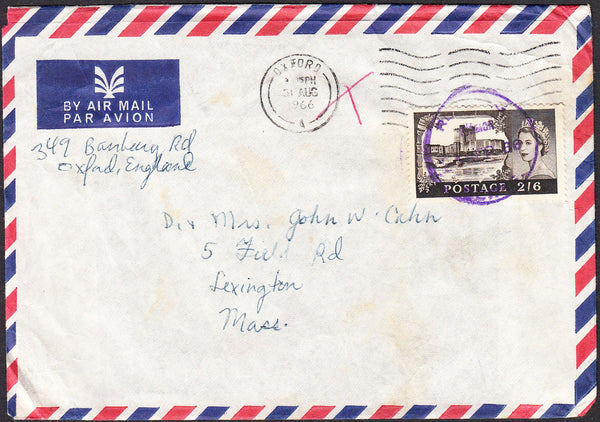 BY AIR MAIL
PAR AVION
349 Banbury Rd
Oxford, England
OXFORD
31 AUG
1966
POSTAGE 2/6
D. & Mrs. John W. Cahn
5 Field Rd
Lexington
Mass.